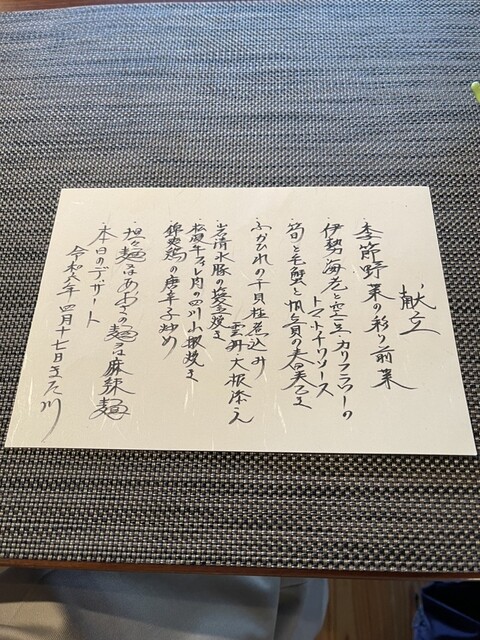 献立
季節野菜の彩り前菜
伊勢海老と空豆カリフラワーの
トマトチリソース
筍と毛蟹と帆立貝の春巻
ふかひれの干貝柱煮込み
雲丹大根添え
岩清水豚の窯焼き
松阪牛フィレ肉の四川山椒焼き
錦爽鶏の唐辛子炒め
担々麺又はあおさの麺又は麻辣麺
本日のデザート
令和 年 四月十七日 川